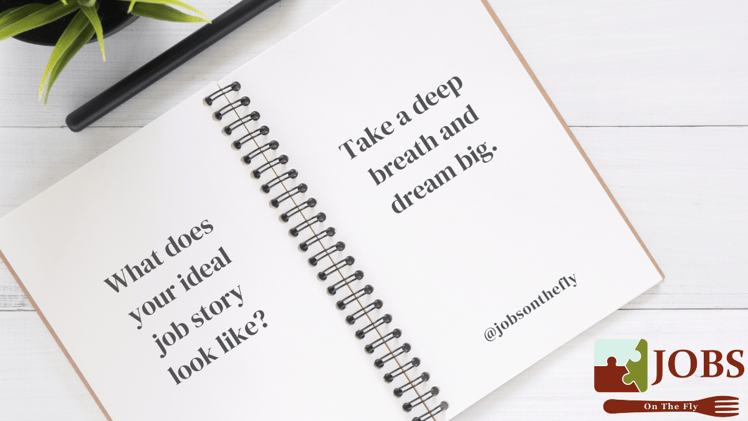 What does
your ideal
job story
look like?
Take a deep
breath and
dream big.
@jobsonthefly
JOBS
On The Fly